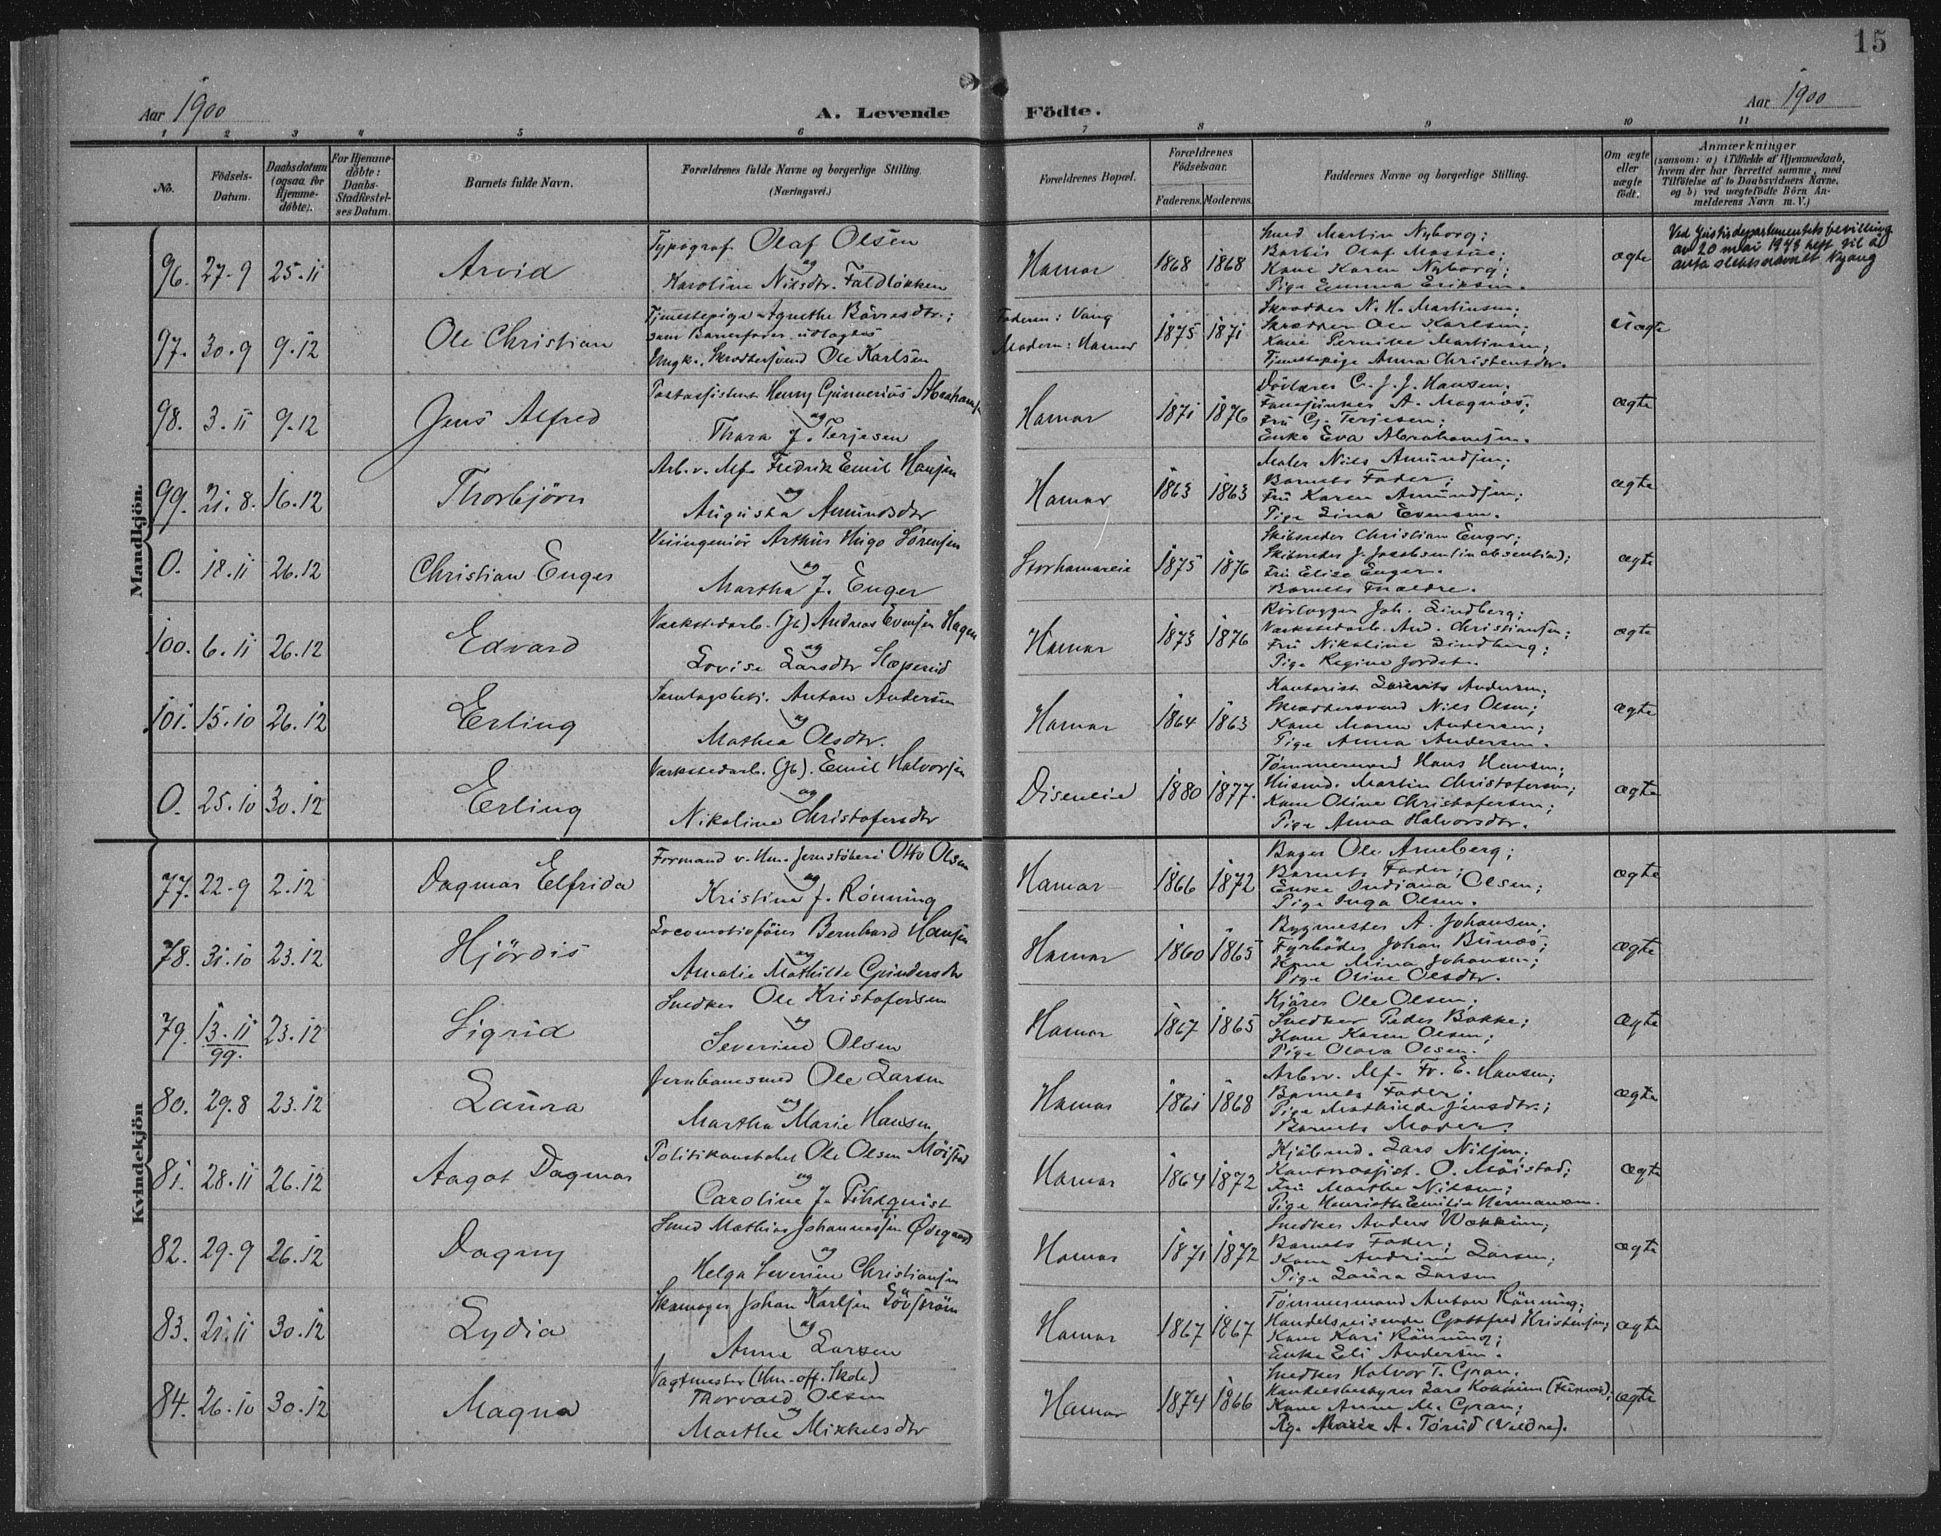 15
Aar 1900
A. Levende
Fødte.
Aar 1900
1 2 3 4 5 6 7 8 9 10 11
No.
Fødsels-
Datum.
Daabsdatum
(ogsaa for
Hjemme-
døbte).
For Hjemme-
døbte:
Daabs-
Stadfæstel-
ses Datum.
Barnets fulde Navn.
Forældrenes fulde Navne og borgerlige Stilling.
(Næringsvei.)
Forældrenes Bopæl.
Forældrenes
Fødselsaar.
Faderens. Moderens.
Faddernes Navne og borgerlige Stilling.
Om ægte
eller
uægte
født.
Anmærkninger
(saasom: a) i Tilfælde af Hjemmedaab,
hvem der har forrettet samme, med
Tilføielse af to Daabsvidners Navne,
og b) ved uægtefødte Børn An-
melderens Navn m. V.)
Mandkjön.
96. 27-9 25.11 Arvid
Typograf Olaf Olsen
og
Karoline Nilsdtr. Faldløkken
Hamar 1868 1868
Smed Martin Nyborg;
Barbér Olaf Mostue;
Kone Karen Nyborg;
Pige Emma Eriksen.
ægte
Ved Justisdepartementets bevilling
av 20 mai 1943 gitt til å
anta slektsnavnet Nyang
97. 30.9 9.12 Ole Christian
Tjenestepige Agnethe Bårdsdtr.;
som Barnefader udlagdes
Ungk. Skræddersvend Ole Karlsen
Faderen: Vang
Modern: Hamar
1875 1871
Skrædder N. H. Martinsen;
Skrædder Ole Karlsen;
Kone Pernille Martinsen;
Tjenestepige Anna Christensdtr.
Uægte
98. 3.11 9.12 Jens Alfred
Postassistent Henry Gunnerius Abrahams
og
Thara J. Terjesen
Hamar 1871 1876
C. J. J. Hansen;
A. Magnus;
Fru G. Terjesen;
Enke Eva Abrahamsen.
ægte
99. 21.8. 16.12 Thorbjörn
Arb. v. Mf. Fredrik Emil Hansen
og
Augusta Amundsdtr
Hamar 1863 1863
Maler Nils Amundsen;
Barnets Fader;
Fru Karen Amundsen;
Pige Lina Evensen.
ægte
0. 18.11 26.12 Christian Enger
Veiingeniör Arthur Hugo Sörensen
og
Martha J. Enger
Storhamareie 1875 1876
Skibsreder Christian Enger;
Skibsreder J. Jacobsen (in absentia);
Fru Elise Enger.
Barnets Forældre.
ægte
100. 6.11 26.12 Edvard
Værkstedarb. (Jb) Andreas Evensen Hagen
og
Lovise Larsdtr
Hamar 1873 1876
Rörlægger Joh. Lindberg;
Værkstedarb. And. Christiansen;
Fru Nikoline Lindberg;
Pige Regine Jordet.
ægte
101. 15.10 26.12 Erling
Anton Andersen
og
Mathea Olsdtr.
Hamar 1864 1863
Kontorist Laurits Andersen;
Skræddersvend Nils Olsen;
Kone Maren Andersen;
Pige Anna Andersen.
ægte
0. 25.10 30.12 Erling
Værkstedarb. (Jb). Emil Halvorsen
og
Nikoline Christofersdtr
Diseneie 1880 1877.
Tømmermand Hans Hansen;
Husmd. Martin Christofersen;
Kone Oline Christofersen;
Pige Anna Halvorsdtr.
ægte
Kvindekjön
77. 22-9 2.12 Dagmar Elfrida
Formand v. Hm. Jernstöberi Otto Olsen
og
Kristine J. Rönning
Hamar 1866 1872
Bager Ole Arneberg;
Barnets Fader;
Enke Indiana Olsen;
Pige Inga Olsen.
ægte
78. 31.10 23.12 Hjördis
Locomotivfører Bernhard Hansen
og
Amalie Mathilde Gundersdtr
Hamar 1860 1865
Bygmester A. Johansen;
Fyrböder Johan Bunæs;
Kone Mina Johansen;
Pige Oline Olsdtr.
ægte
79. 13.11
99. 23.12 Sigrid
Snedker Ole Kristofersen
og
Severine Olsen
Hamar 1867 1865
Kjører Ole Olsen;
Snedker Peder Bakke;
Kone Karen Olsen;
Pige Olava Olsen.
ægte
80. 29.8 23.12 Laura
Jernbanesmed Ole Larsen
og
Martha Marie Hansen
Hamar 1861 1868
Arb. v. Mf. Fr. E. Hansen;
Barnets Fader;
Pige Mathilde Jensdtr.;
Barnets Moder.
ægte
81. 28.11 26.12 Aagot Dagmar
Politikonstabel Ole Olsen Möistad
og
Caroline J. Pihlquist
Hamar 1864 1872
Lars Nilsen;
O. Möistad;
Fru Marthe Nilsen;
Pige Henriette Emilie Hermansen.
ægte
82. 29.9 26.12 Dagny
Smed Mathias Johannessen Ødegaard
og
Helga Severine Christiansen
Hamar 1871 1872
Snedker Anders
Barnets Fader;
Kone Andrine Larsen;
Pige Laura Larsen
ægte
83. 21.11 30.12 Lydia
Skomager Johan Karlsen Lövström
og
Anne Larsen
Hamar 1867 1867
Tømmermand Anton Rönning;
Handelsreisende Gottfred Kristensen;
Kone Kari Rönning;
Enke Eli Andersen.
ægte
84. 26.10 30.12 Magna
Vagtmester (Um.-off. Skole)
Thorvald Olsen
og
Marthe Mikkelsdtr
Hamar 1874 1866
Snedker Halvor T. Gran;
Handelsbestyrer Lars (Furnæs);
Kone Anne M. Gran;
Pige Marie A. Torud (Veldre).
ægte